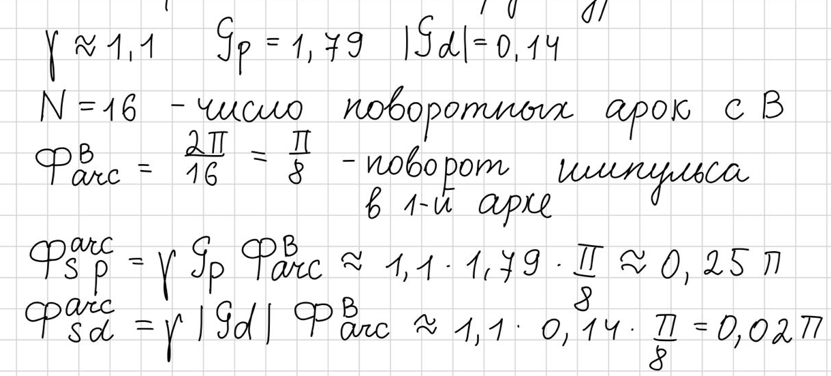 γ ≈ 1,1 Gp = 1,79 |Gd| = 0,14
N = 16 - число поворотных арок с B
Φ^B_arc = 2π/16 = π/8 - поворот импульса
в 1-й арке
Φ^arc_sp = γ Gp Φ^B_arc ≈ 1,1 · 1,79 · π/8 ≈ 0,25 π
Φ^arc_sd = γ |Gd| Φ^B_arc ≈ 1,1 · 0,14 · π/8 = 0,02 π